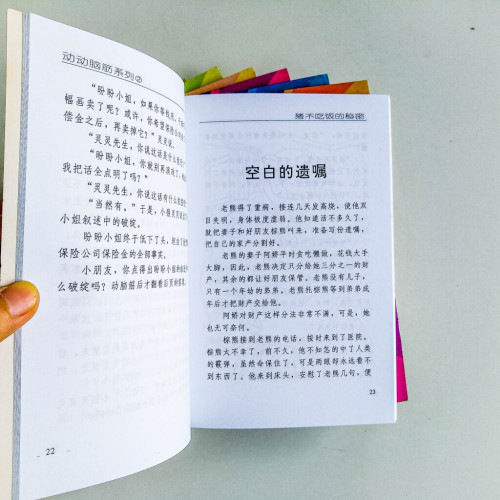 动动脑筋系列②
“盼盼小姐，如果你等钱用，
幅画卖了呢？或许，你希望保险公司
偿金之后，再卖掉它？”灵灵说。
“灵灵先生，你说这话是什么意思？”
“盼盼小姐，你
我把话全点明了吗？”
“灵灵先生，你说这话有什么
“当然有。”于是，小
小姐叙述中的破绽。
盼盼小姐终于低下了头，
保险公司保险金的全部事实。
小朋友，你点得出盼盼小姐
么破绽吗？动脑筋后才翻看后页的答案。
- 22 -
猪不吃饭的秘密
空白的遗嘱
老熊得了重病，接连几天发高烧，使他双
目失明，身体极度虚弱。他知道活不多久了，
就把妻子和好朋友棕熊叫来，准备写份遗嘱，
把自己的家产分割好。
老熊的妻子阿娇平时贪吃懒做，花钱大手
大脚，因此，老熊决定只分给她三分之一的财
产，其余的都让好朋友保管。老熊没有儿子，
只有一个年幼的弟弟。老熊托棕熊等到弟弟成
年后才把财产交给他。
阿娇对财产这样分法非常不满，可是，她
也无可奈何。
棕熊接到老熊的电话，按时来到了医院。
棕熊大不幸了，前不久，他不知怎的中了人类
的霰弹，虽然命保住了，可是两眼却永远看不
到东西了。他来到床头，安慰了老熊几句，便
23